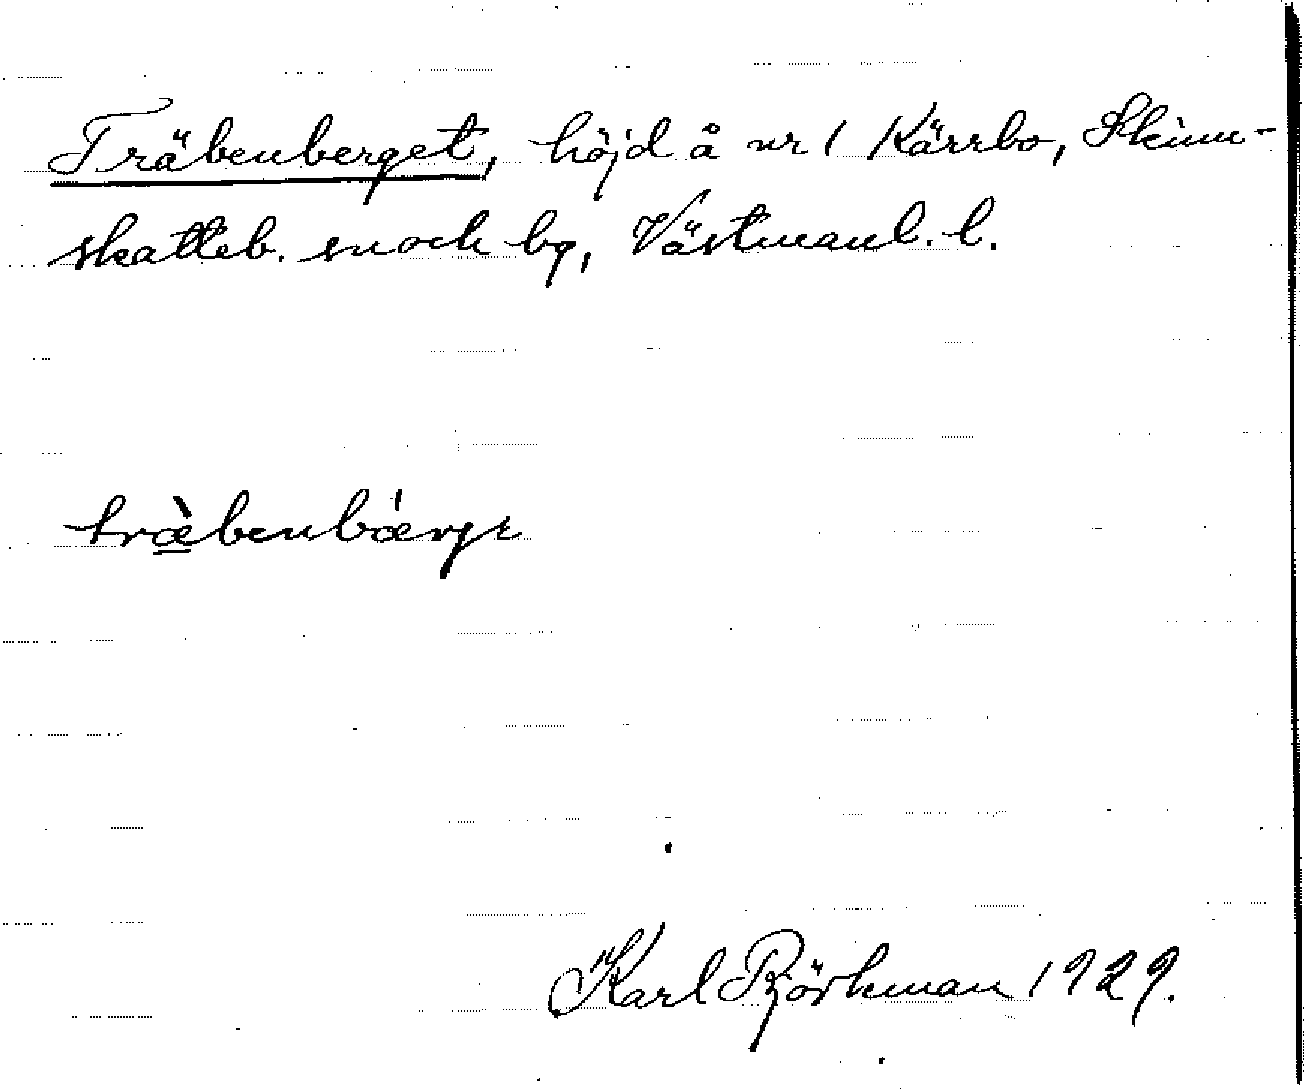 Träbenberget, höjd å nr 1 Kärrbo, Skinn-
skatteb. snoch bg, Västmanl. l.
træ̀benbǽrjt
Karl Björkman 1929.